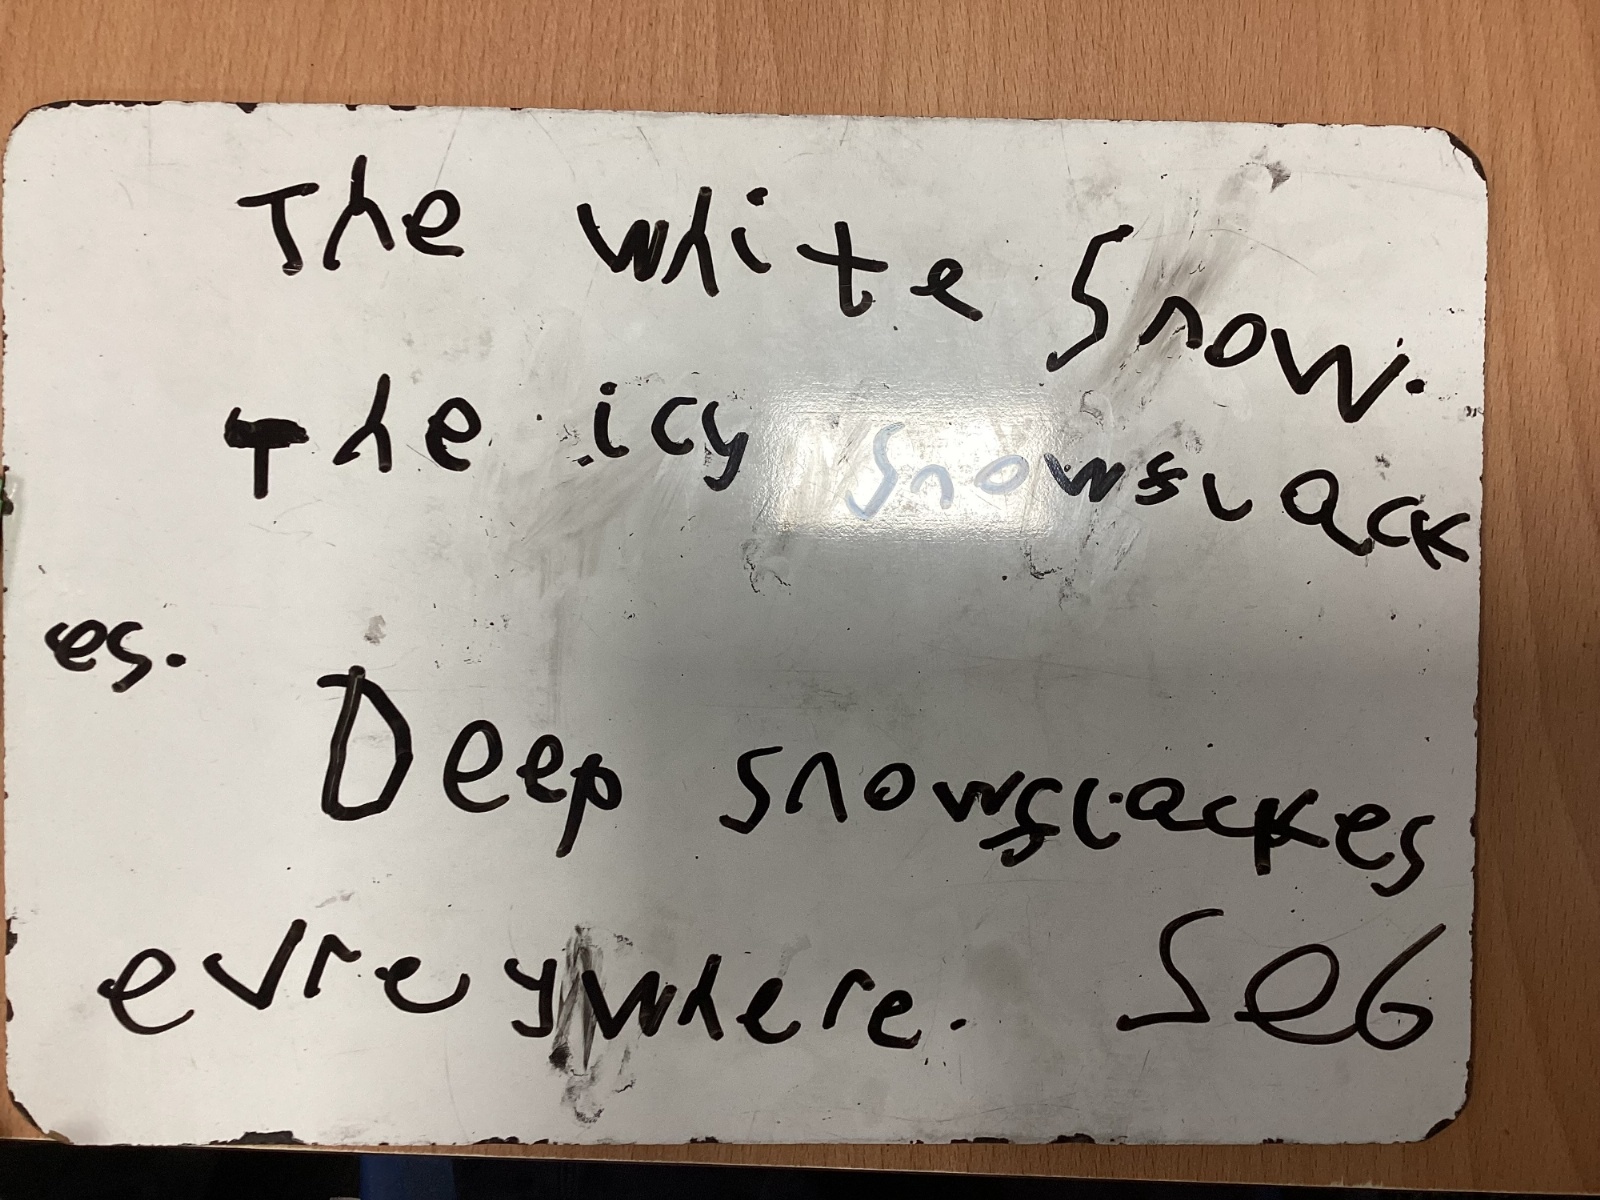 The white Snow.
The icy snowslack
es.
Deep snowslackes
evreywhere. Seb